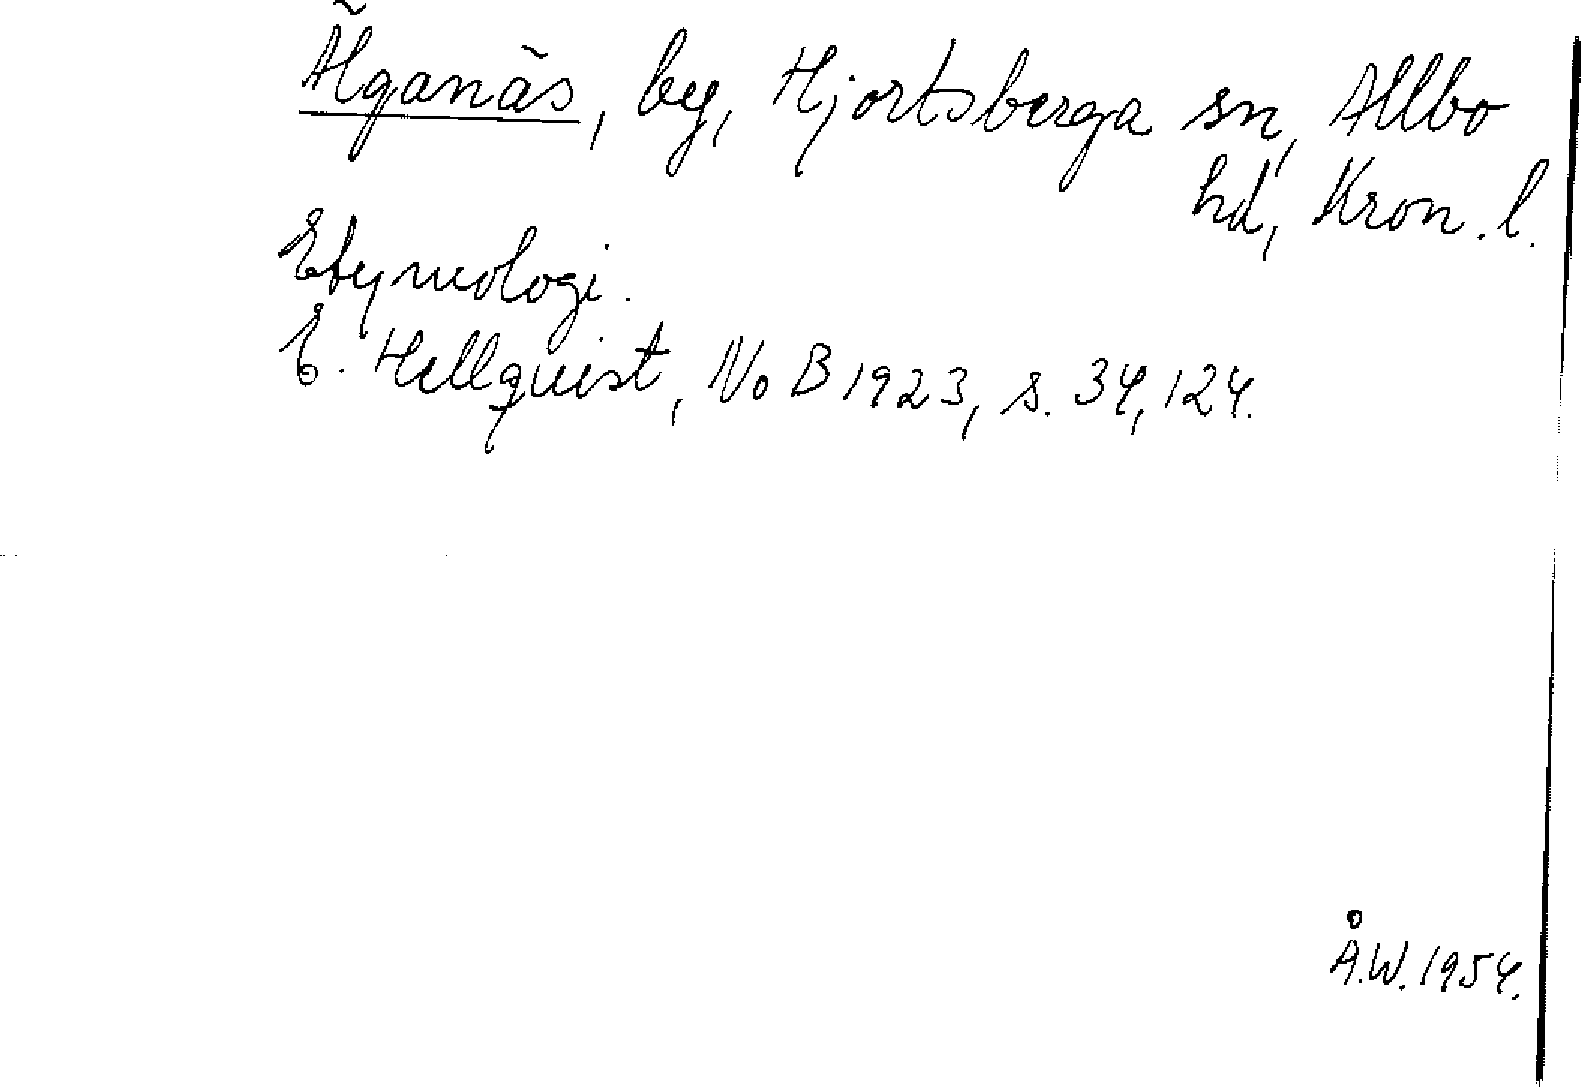 Älganäs, by, Hjortsberga sn, Allbo
hd, Kron. l.
Etymologi.
E. Hellquist, NoB 1923, s. 34, 124.
Å.W. 1954.